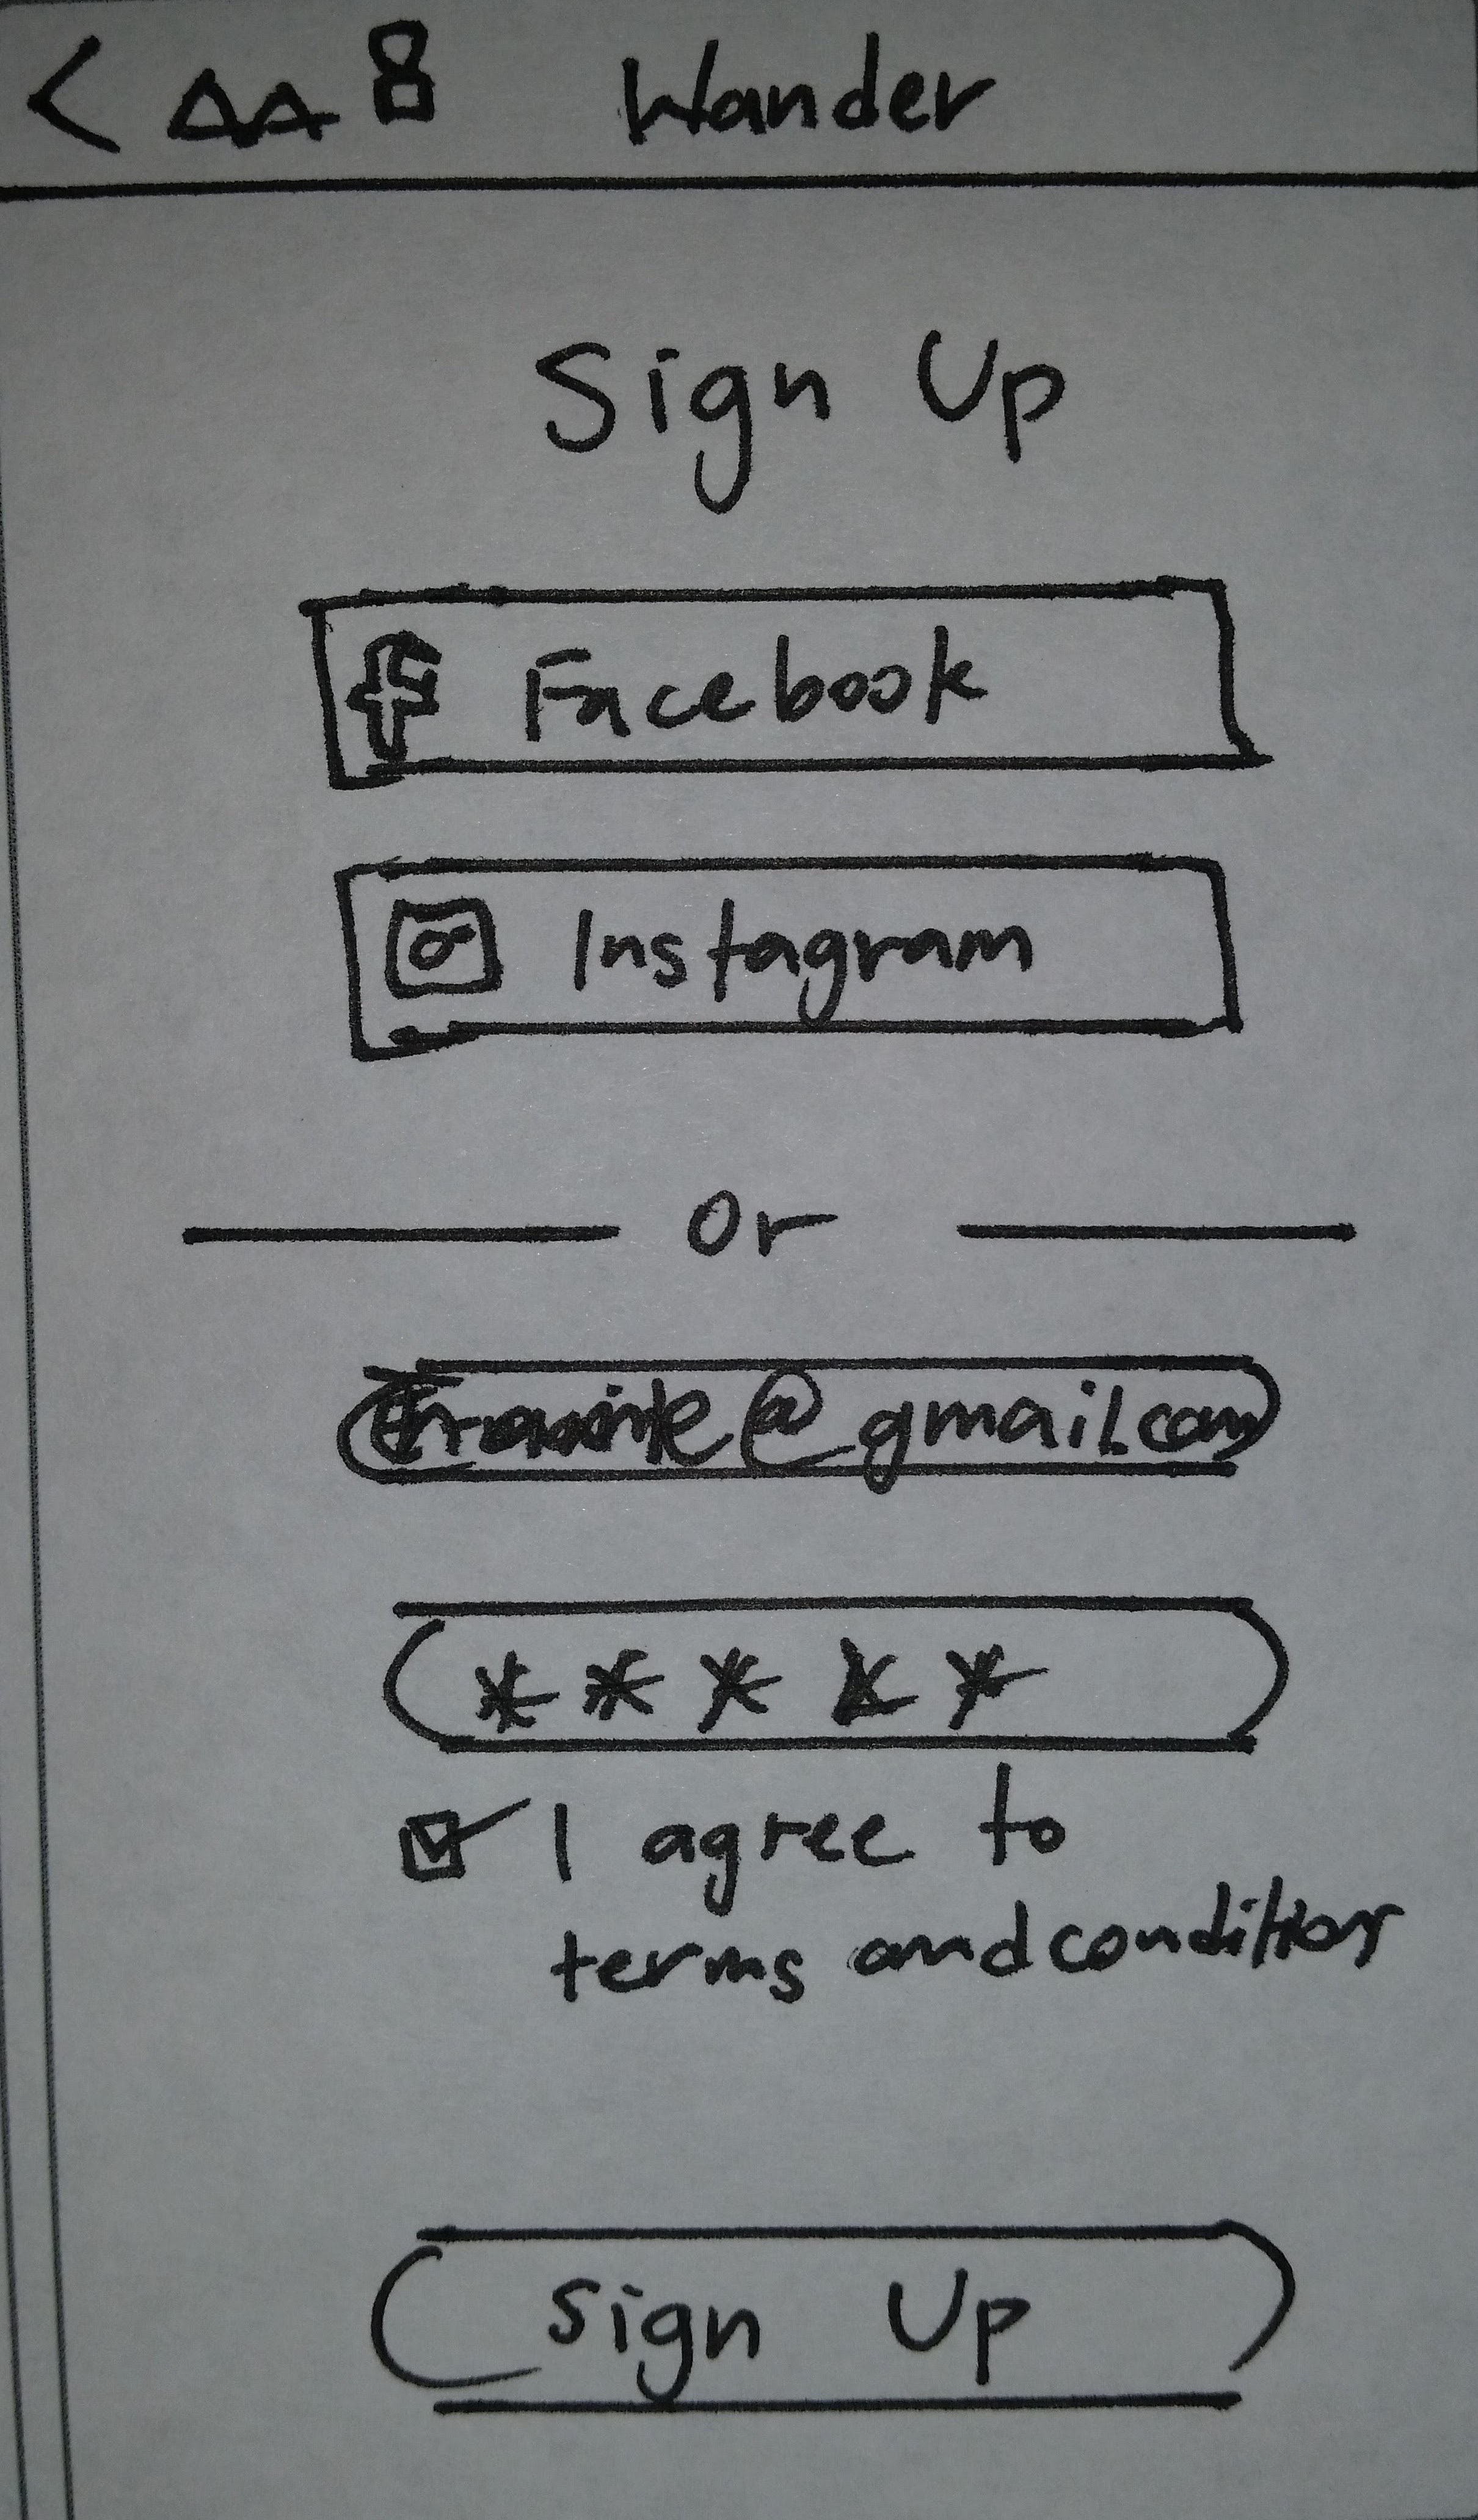 Wander
Sign Up
Facebook
Instagram
Or
@gmail.com
*****
I agree to
terms and conditions
Sign Up